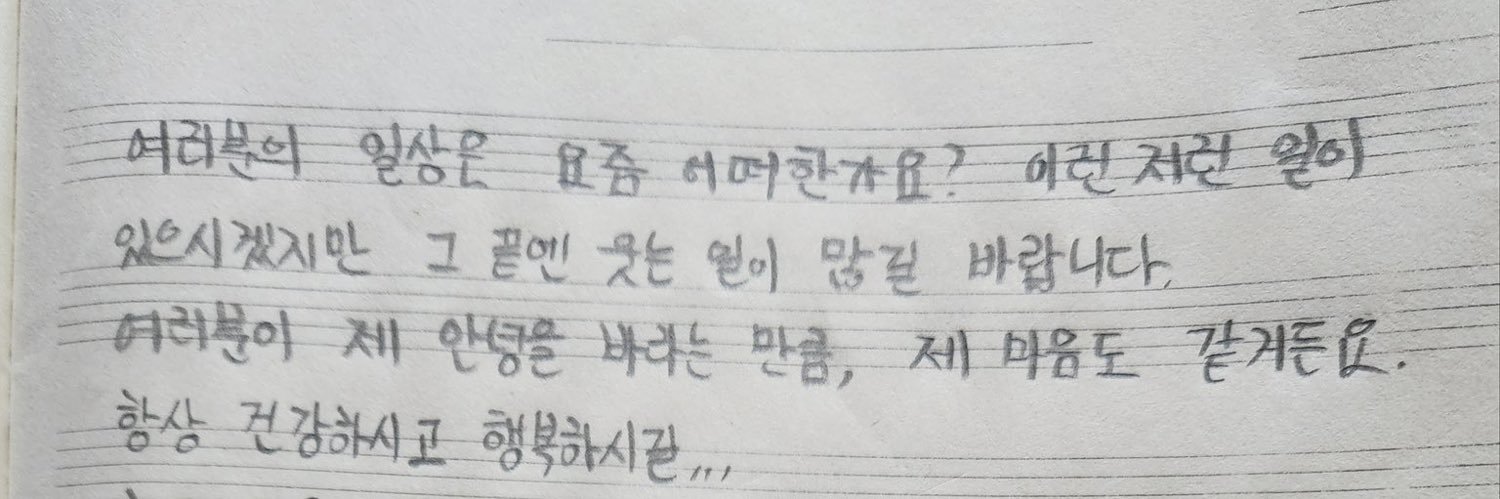 여러분의 일상은 요즘 어떠한가요? 이런저런 일이
있으시겠지만 그 끝엔 웃는 일이 많길 바랍니다.
여러분이 제 안녕을 바라는 만큼, 제 마음도 같거든요.
항상 건강하시고 행복하시길,,,